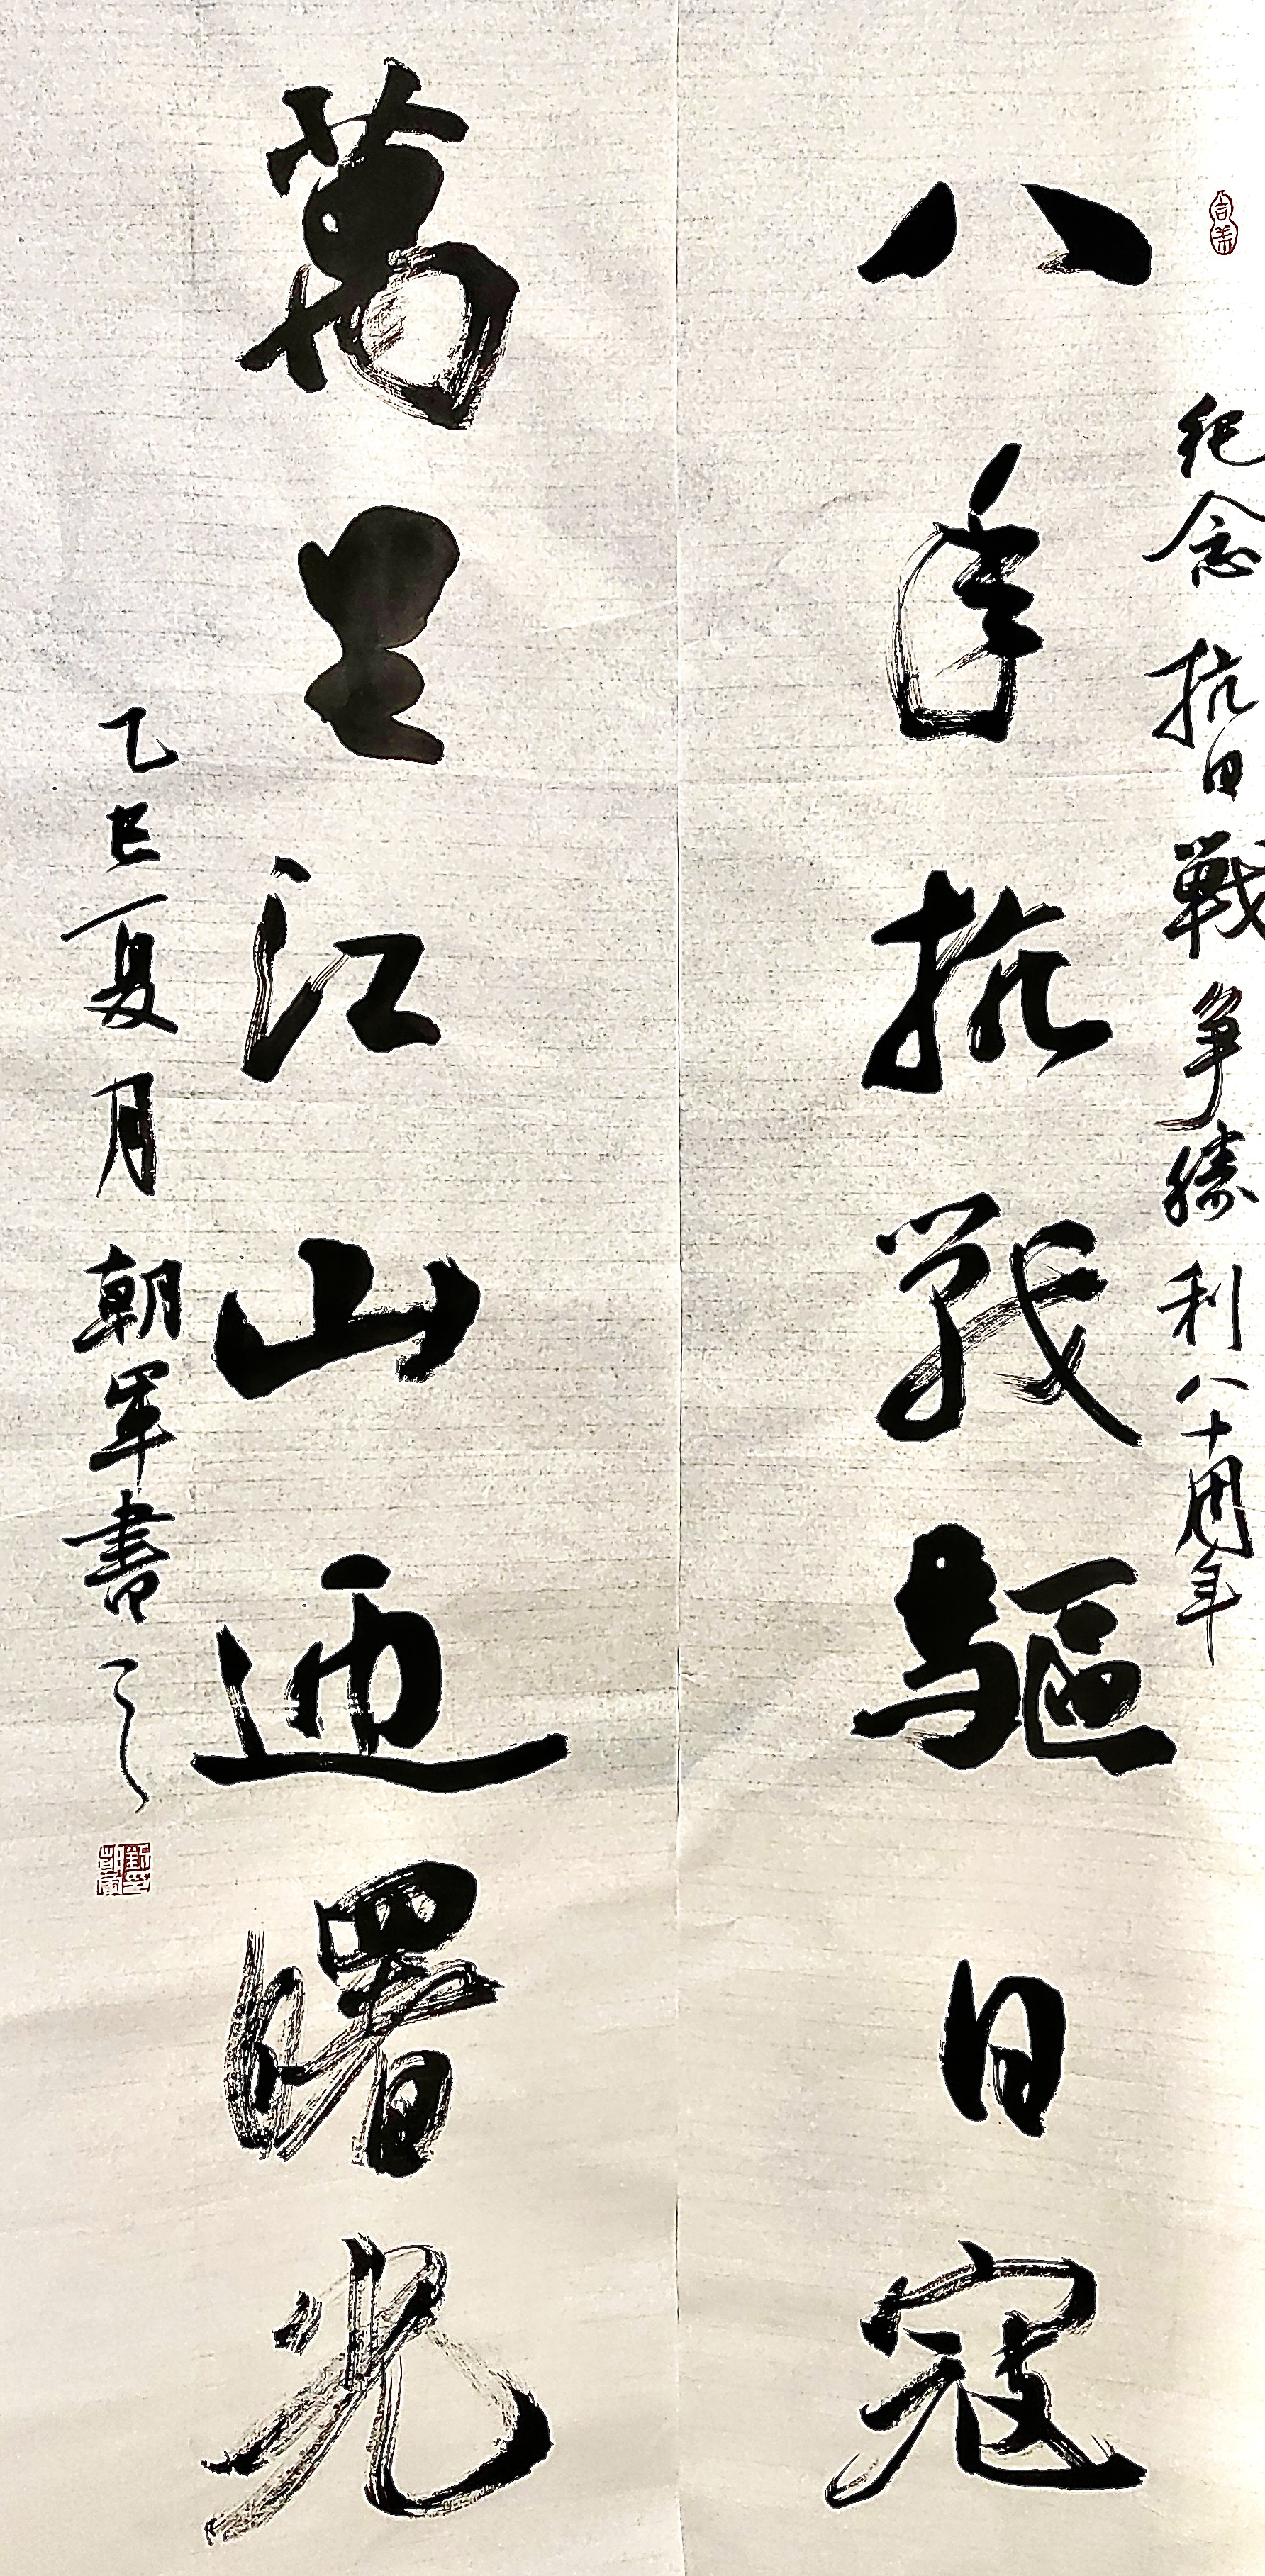 紀念抗日戰爭勝利八十周年
八年抗戰驅日寇
萬里江山迎曙光
乙巳夏月朝軍書之